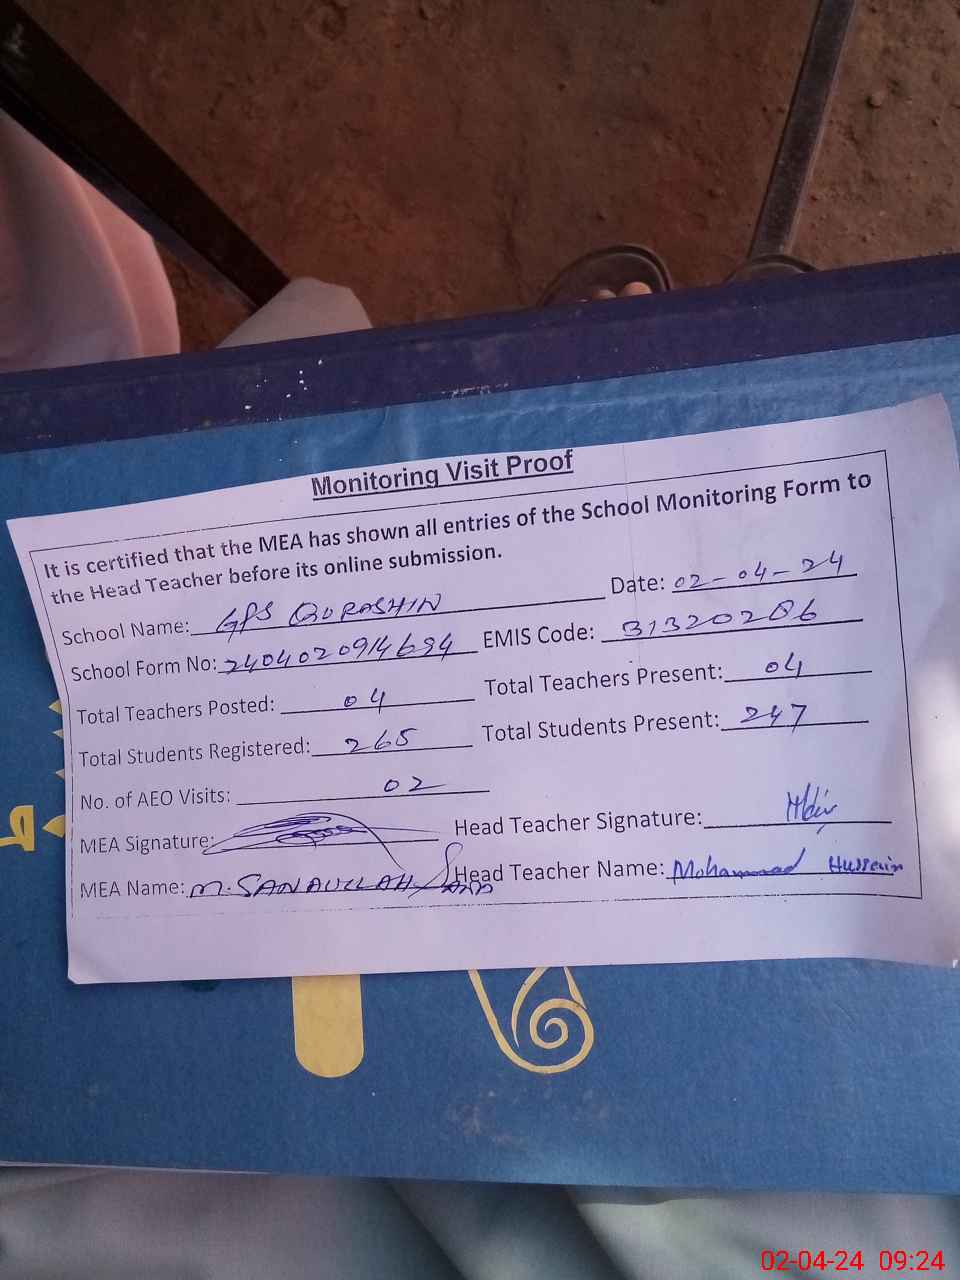 Monitoring Visit Proof
It is certified that the MEA has shown all entries of the School Monitoring Form to
the Head Teacher before its online submission.
School Name: GPS QURASHIN Date: 02-04-24
School Form No: 2404020914694 EMIS Code: 31320286
Total Teachers Posted: 04 Total Teachers Present: 04
Total Students Registered: 265 Total Students Present: 247
No. of AEO Visits: 02
MEA Signature: Head Teacher Signature:
MEA Name: M. SANAULLAH Head Teacher Name: Mohammad Hussain
02-04-24 09:24